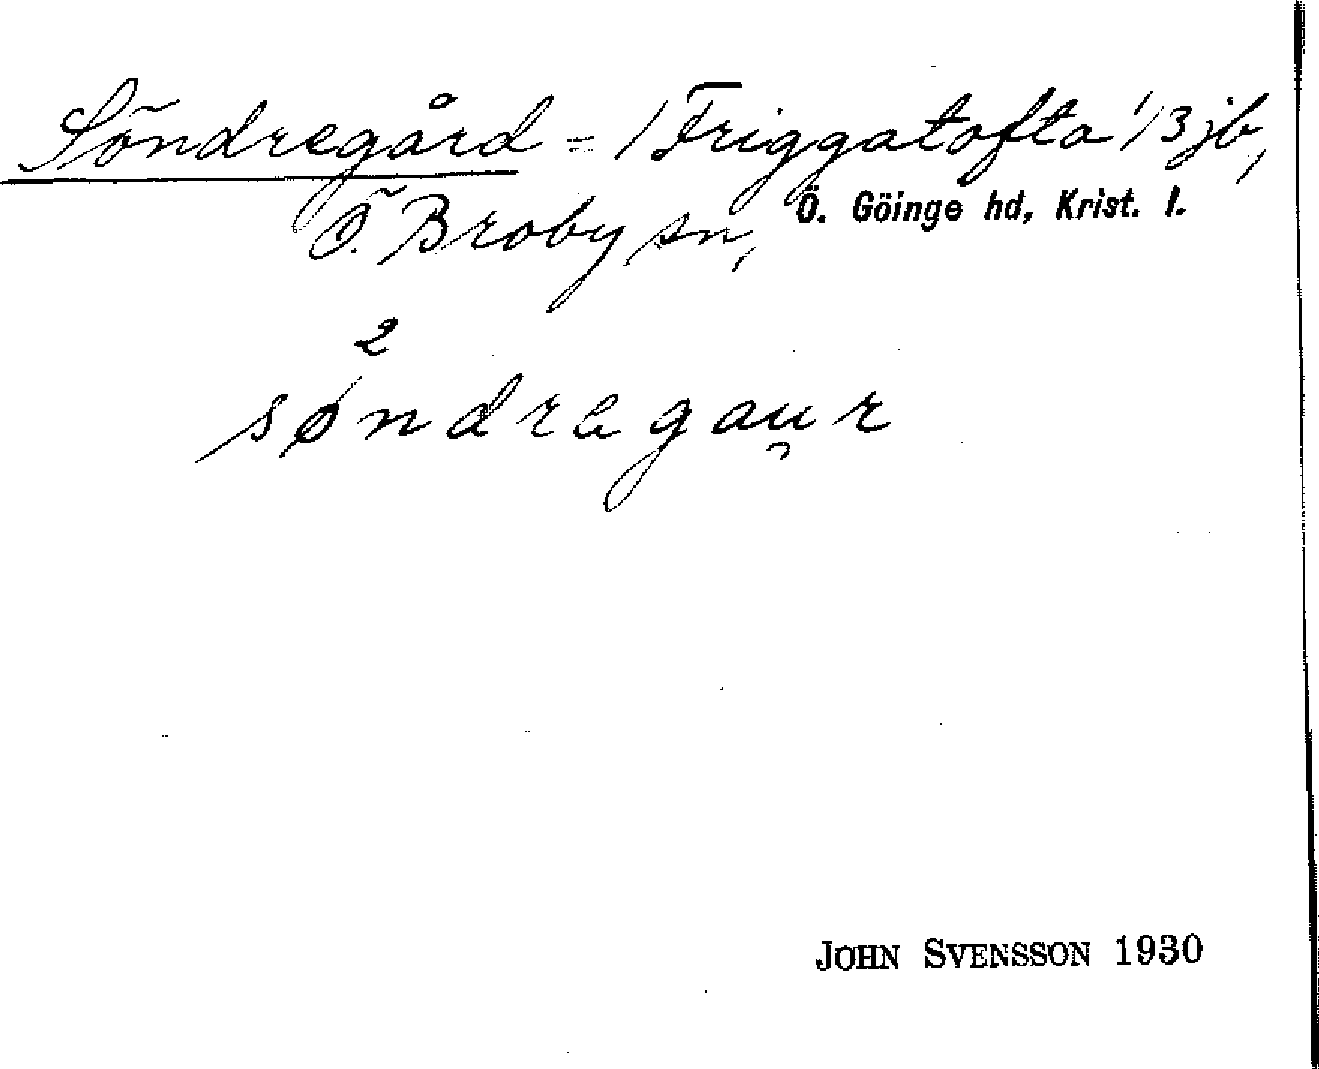 Söndregård = /Friggatofta/ 3 jb,
Ö. Broby sn, Ö. Göinge hd, Krist. l.
2
søndregau̯r
JOHN SVENSSON 1930